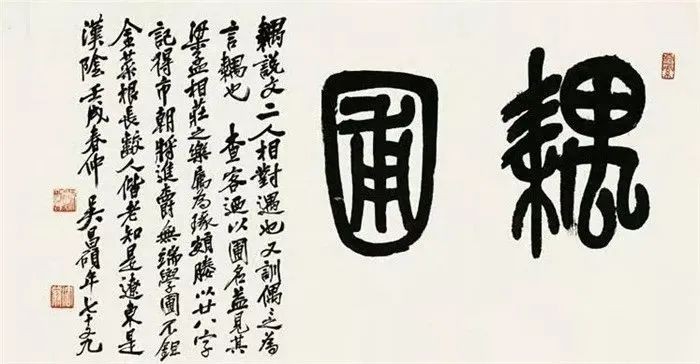 耦圃
耦說文二人相對遇也又訓偶之為
言耦也 查客迺以圃名益見其
梁孟相莊之樂屬為媵以廿八字
記得市朝將進爵無端學圃不鉏
金菜根長齩人偕老知是遼東是
漢陰 壬戌春仲 吳昌碩年七十九